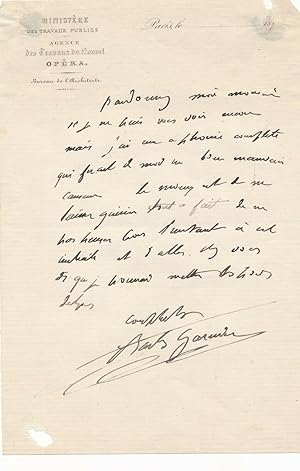 MINISTÈRE
DES TRAVAUX PUBLICS
AGENCE
des Travaux du Nouvel
OPÉRA
Bureau de l'Architecte
Paris, le 187
pardonnez moi monsieur
si je ne vais vous voir encore
mais j'ai une aphonie complète
qui ferait de moi un bien mauvais
causeur le mieux est de me
laisser guérir tout à fait de me
l'instant à cet
et d'aller chez vous
dès que je pourrai mettre le
dehors
Charles Garnier